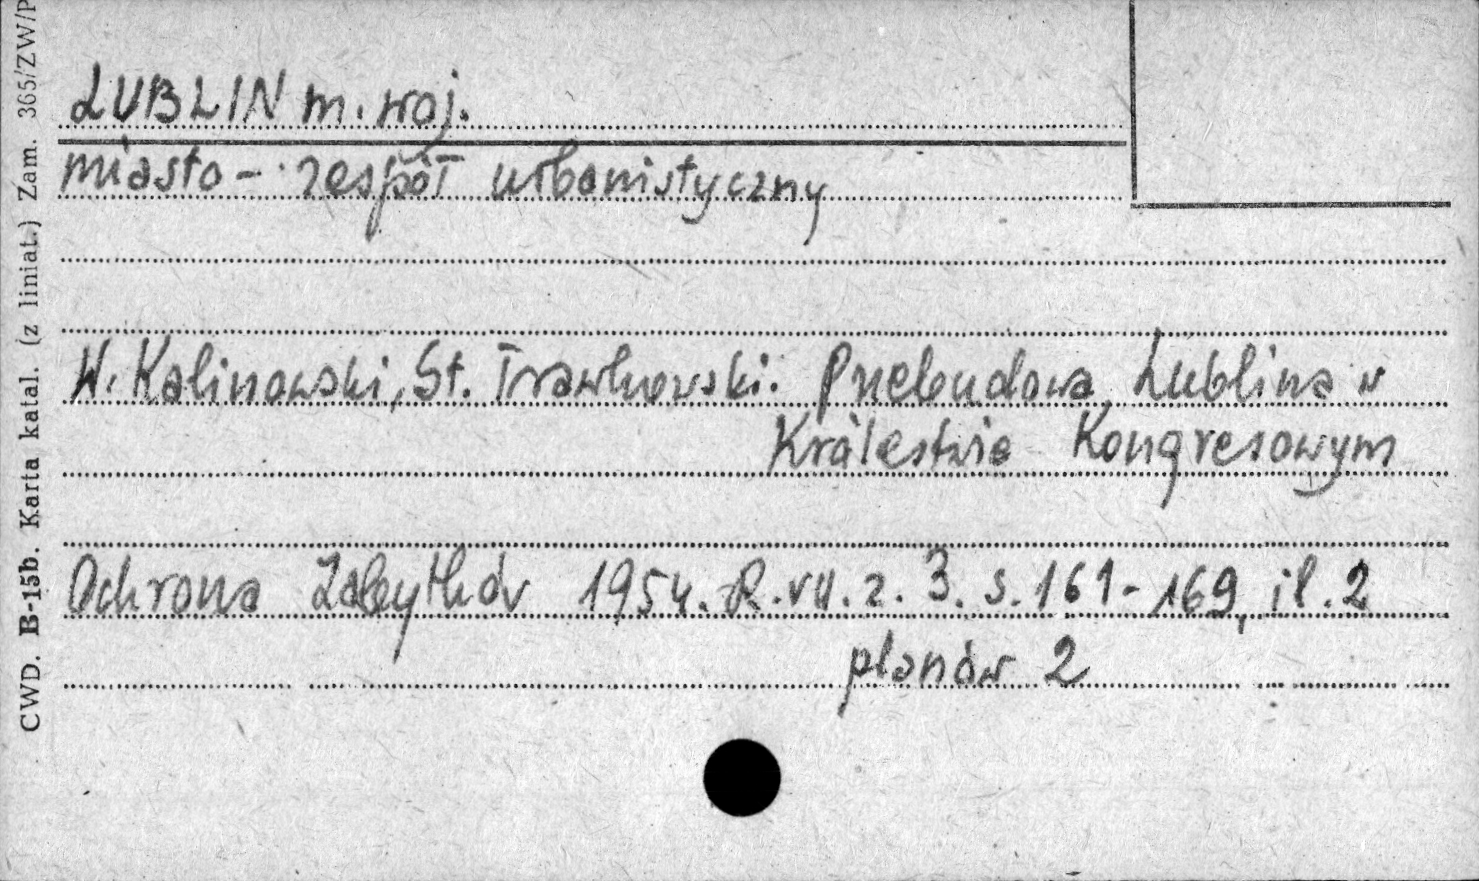 LUBLIN m. woj.
miasto - zespół urbanistyczny
W. Kalinowski, St. Trawkowski. Przebudowa Lublina w
Królestwie Kongresowym
Ochrona Zabytków 1954. R. VII. z. 3. s. 161-169, il. 2
planów 2
CWD. B-15b. Karta katal. (z liniat.) Zam. 365/ZW/P